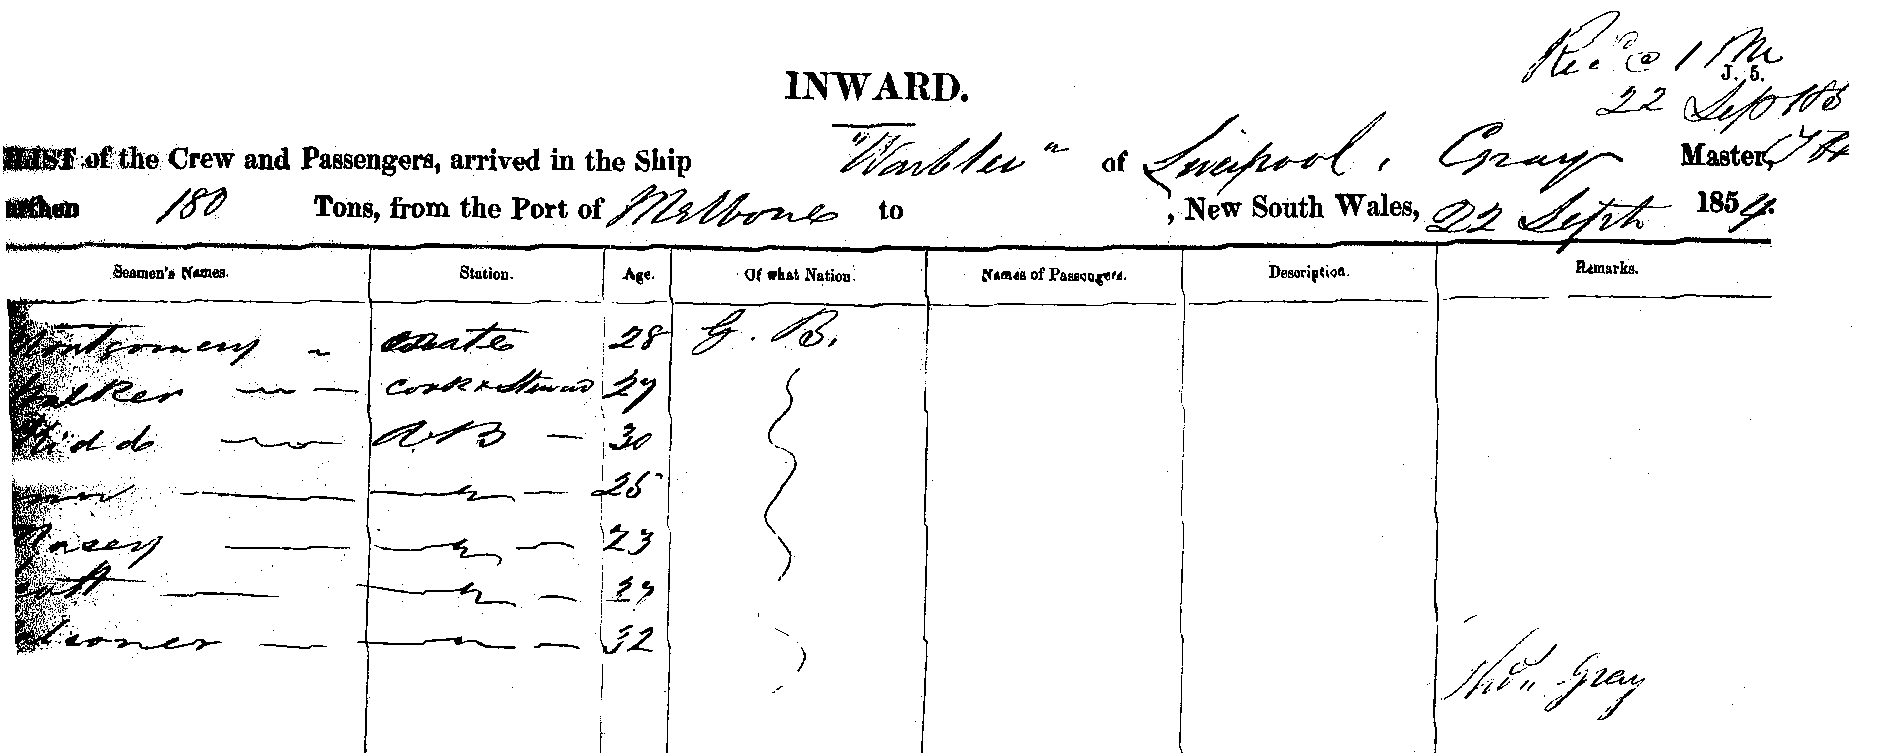 Rec'd @ 1 PM
J. 5.
22 Sept
INWARD.
LIST of the Crew and Passengers, arrived in the Ship "Warbler" of Liverpool, Gray Master,
180 Tons, from the Port of Melbone to , New South Wales, 22 Septr 1854.
Seamen's Names. Station. Age. Of what Nation. Names of Passengers. Description. Remarks.
Montgomery " mate 28 G. B.
Walker cook & Steward 27
Kidd A.B 30
25
23
27
32
Thos. Gray